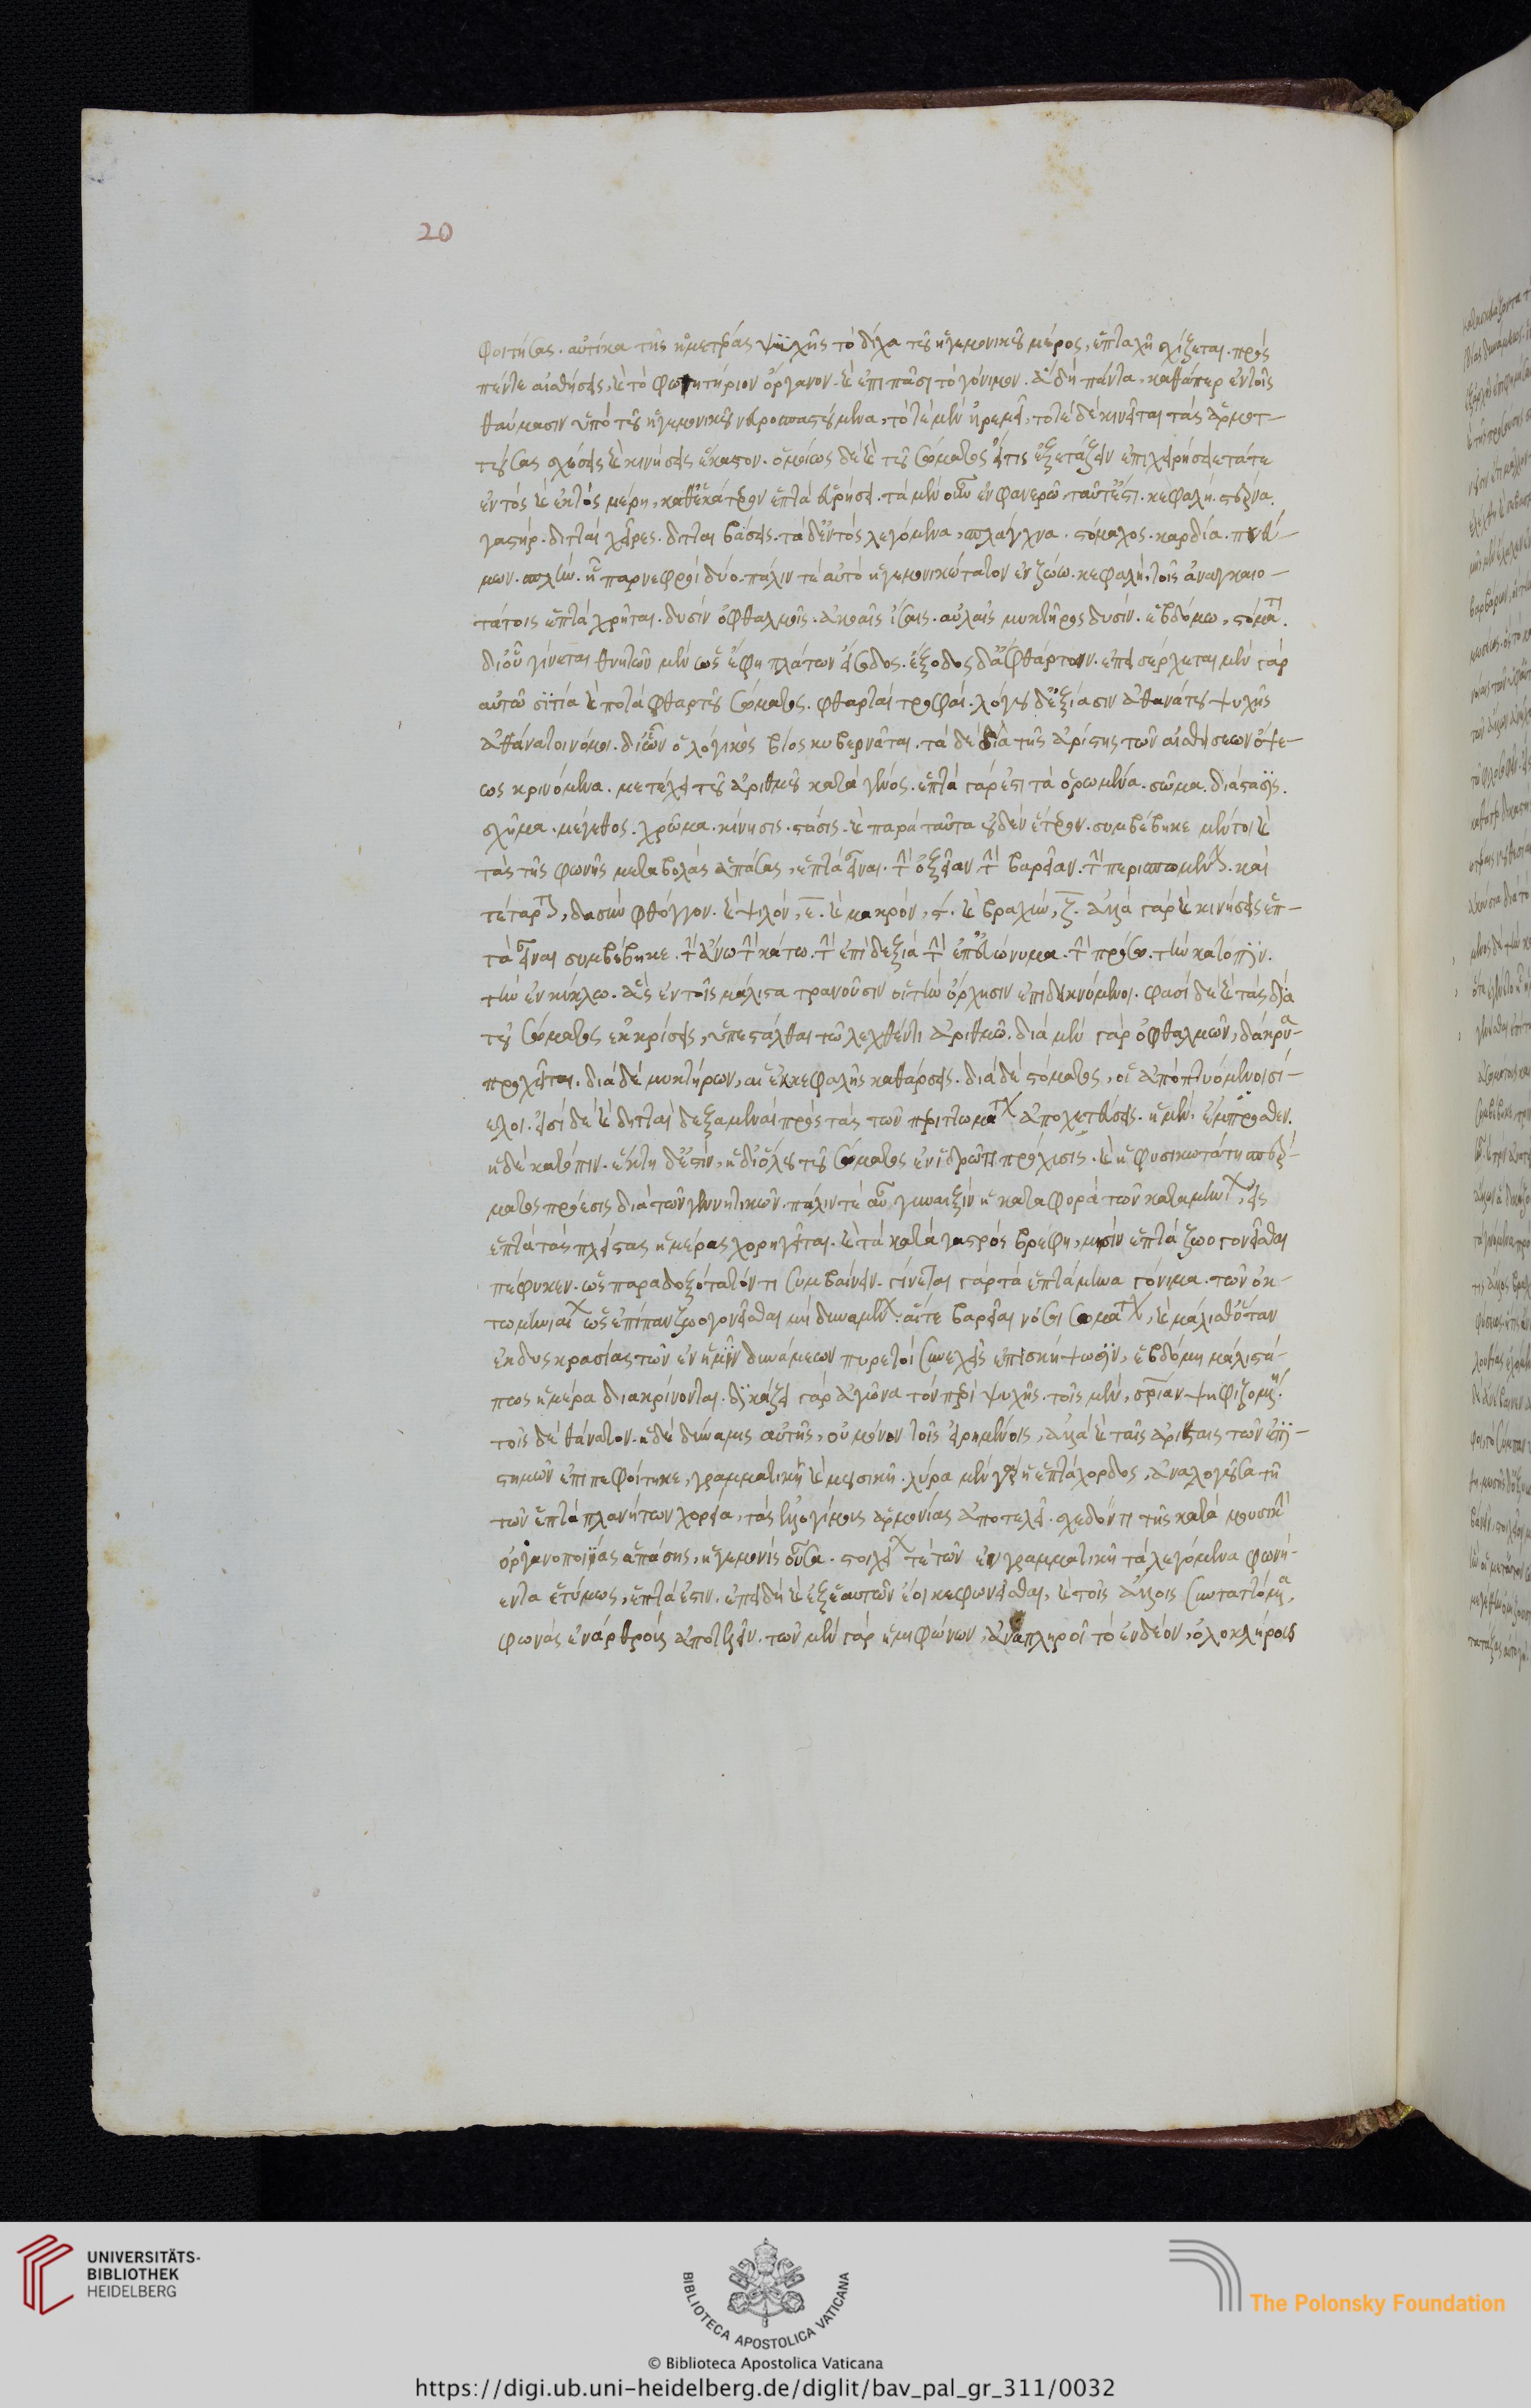 φοιτήσας. αὐτίκα τῆς ἡμετέρας ψυχῆς τὸ δίχα τοῦ ἡγεμονικοῦ μέρος, ἑπταχῆ σχίζεται. πρὸς
πέντε αἰσθήσεις, καὶ τὸ φωνητήριον ὄργανον. καὶ ἐπὶ πᾶσι τὸ γόνιμον. ἃ δὴ πάντα, καθάπερ ἐν τοῖς
θαύμασιν ὑπὸ τοῦ ἡγεμονικοῦ νευροσπαστούμενα, τὸ τὲ μὲν ἠρεμεῖ, τοτὲ δὲ κινεῖται τὰς ἁρμοτ-
τούσας σχέσεις καὶ κινήσεις ἕκαστον. ὁμοίως δὲ καὶ τοῦ σώματος εἴ τις ἐξετάζειν ἐπιχειρήσειε τά τε
ἐντὸς καὶ ἐκτὸς μέρη, καθ' ἑκάτερον ἑπτὰ εὑρήσει. τὰ μὲν οὖν ἐν φανερῶ, ταῦτ' ἐστι. κεφαλή. στέρνα.
γαστήρ. διτταὶ χεῖρες. διτταὶ βάσεις. τὰ δ' ἐντὸς λεγόμενα, σπλάγχνα. στόμαχος. καρδία. πνεύ-
μων. σπλήν. ἧπαρ νεφροὶ δύο. πάλιν τὲ αὐτὸ ἡγεμονικώτατον ἐν ζώω. κεφαλὴ, τοῖς ἀναγκαιο-
τάτοις ἑπτὰ χρῆται. δυσὶν ὀφθαλμοῖς. ἀκοαῖς ἴσαις. αὐλαῖς μυκτῆρος δυσίν. ἑβδόμω, στόματι.
δι' οὗ γίνεται θνητῶν μὲν ὡς ἔφη πλάτων εἴσοδος. ἔξοδος δ' ἀφθάρτων. ἐπεισέρχεται μὲν γὰρ
αὐτῶ σιτία καὶ ποτὰ φθαρτοῦ σώματος. φθαρταὶ τροφαί. λόγοι δ' ἐξίασιν ἀθανάτου ψυχῆς
ἀθάνατοι νόμοι. δι' ὧν ὁ λογικὸς βίος κυβερνᾶται. τὰ δὲ διὰ τῆς ἀρίστης τῶν αἰσθήσεων ὄψε-
ως κρινόμενα. μετέχει τοῦ ἀριθμοῦ κατὰ γένος. ἑπτὰ γάρ ἐστι τὰ ὁρωμένα. σῶμα. διάστασις.
σχῆμα. μέγεθος. χρῶμα. κίνησις. στάσις. καὶ παρὰ ταῦτα οὐδὲν ἕτερον. συμβέβηκε μέντοι καὶ
τὰς τῆς φωνῆς μεταβολὰς ἁπάσας, ἑπτὰ εἶναι. τὴν ὀξεῖαν τὴν βαρεῖαν. τὴν περισπωμένην. καὶ
τέταρτον, δασὺν φθόγγον. καὶ ψιλὸν, ε. καὶ μακρὸν, ϛ. καὶ βραχὺν, ζ. ἀλλὰ γὰρ καὶ κινήσεις ἑπ-
τὰ εἶναι συμβέβηκε. τὴν ἄνω τὴν κάτω. τὴν ἐπὶ δεξιὰ τὴν ἐπ' εὐώνυμα. τὴν πρόσω. τὴν κατόπιν.
τὴν ἐν κύκλω. ἃς ἐν τοῖς μάλιστα τρανοῦσιν οἱ τὴν ὄρχησιν ἐπιδεικνύμενοι. φασὶ δὲ καὶ τὰς διὰ
τοῦ σώματος ἐκκρίσεις, ὑπεστάλθαι τῶ λεχθέντι ἀριθμῶ. διὰ μὲν γὰρ ὀφθαλμῶν, δάκρυα
προχεῖται. διὰ δὲ μυκτήρων, αἱ ἐκ κεφαλῆς καθάρσεις. διὰ δὲ στόματος, οἱ ἀποπτυόμενοι σί-
ελοι. εἰσὶ δὲ καὶ διτταὶ δεξαμεναὶ πρὸς τὰς τῶν περιττωμάτων ἀποχετεύσεις. ἡ μὲν, ἔμπροσθεν.
ἡ δὲ κατόπιν. ἕκτη δ' ἐστὶν, ἡ δι' ὅλου τοῦ σώματος ἐν ἱδρῶτι πρόχυσις. καὶ ἡ φυσικωτάτη σπέρ-
ματος πρόεσις διὰ τῶν γεννητικῶν. πάλιν τὲ αὖ γυναιξὶν ἡ καταφορὰ τῶν καταμηνίων, εἰς
ἑπτὰ τὰς πλείστας ἡμέρας χορηγεῖται. καὶ τὰ κατὰ γαστρὸς βρέφη, μησὶν ἑπτὰ ζωογονεῖσθαι
πέφυκεν. ὡς παραδοξότατόν τι συμβαίνειν. γίνεται γὰρ τὰ ἑπτάμηνα γόνιμα. τῶν ὀκ-
τωμηνιαίων ὡς ἐπίπαν ζωογονεῖσθαι μὴ δυναμένων. αἵ τε βαρεῖαι νόσοι σωμάτων, καὶ μάλισθ' ὅταν
ἐκ δυσκρασίας τῶν ἐν ἡμῖν δυνάμεων πυρετοὶ συνεχεῖς ἐπισκήψωσιν, ἑβδόμη μάλιστά
πως ἡμέρα διακρίνονται. δικάζει γὰρ ἀγῶνα τὸν περὶ ψυχῆς. τοῖς μὲν, σωτηρίαν ψηφιζομένη.
τοῖς δὲ θάνατον. ἡ δὲ δύναμις αὐτῆς, οὐ μόνον τοῖς εἰρημένοις, ἀλλὰ καὶ ταῖς ἀρίσταις τῶν ἐπι-
στημῶν ἐπιπεφοίτηκε, γραμματικῆ καὶ μουσικῆ. λύρα μὲν γὰρ ἡ ἑπτάχορδος, ἀναλογοῦσα τῆ
τῶν ἑπτὰ πλανήτων χορεία, τὰς ἐλλογίμους ἁρμονίας ἀποτελεῖ. σχεδόν τι τῆς κατὰ μουσικὴν
ὀργανοποιΐας ἁπάσης, ἡγεμονὶς οὖσα. στοιχείων τὲ τῶν ἐν γραμματικῆ τὰ λεγόμενα φωνή-
εντα ἐτύμως, ἑπτά ἐστιν. ἐπειδὴ καὶ ἐξ ἑαυτῶν ἔοικε φωνεῖσθαι, καὶ τοῖς ἄλλοις συντατόμενα,
φωνὰς ἐνάρθρους ἀποτελεῖν. τῶν μὲν γὰρ ἡμιφώνων, ἀναπληροῖ τὸ ἐνδέον, ὁλοκλήρους
20
UNIVERSITÄTS-
BIBLIOTHEK
HEIDELBERG
BIBLIOTECA APOSTOLICA VATICANA
The Polonsky Foundation
© Biblioteca Apostolica Vaticana
https://digi.ub.uni-heidelberg.de/diglit/bav_pal_gr_311/0032